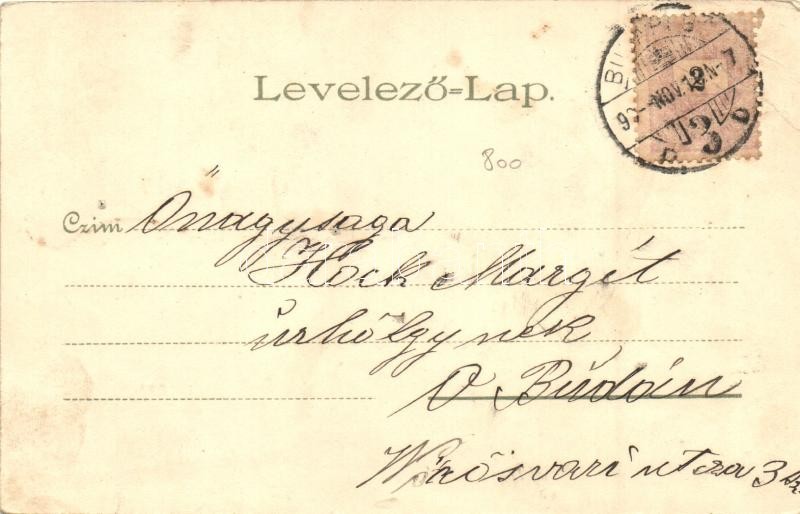 Levelező=Lap.
NOV. 12
800
Czim Ő nagysaga
Hock Margit
úrhölgynek
O Búdán
Vörösvari utcza 3